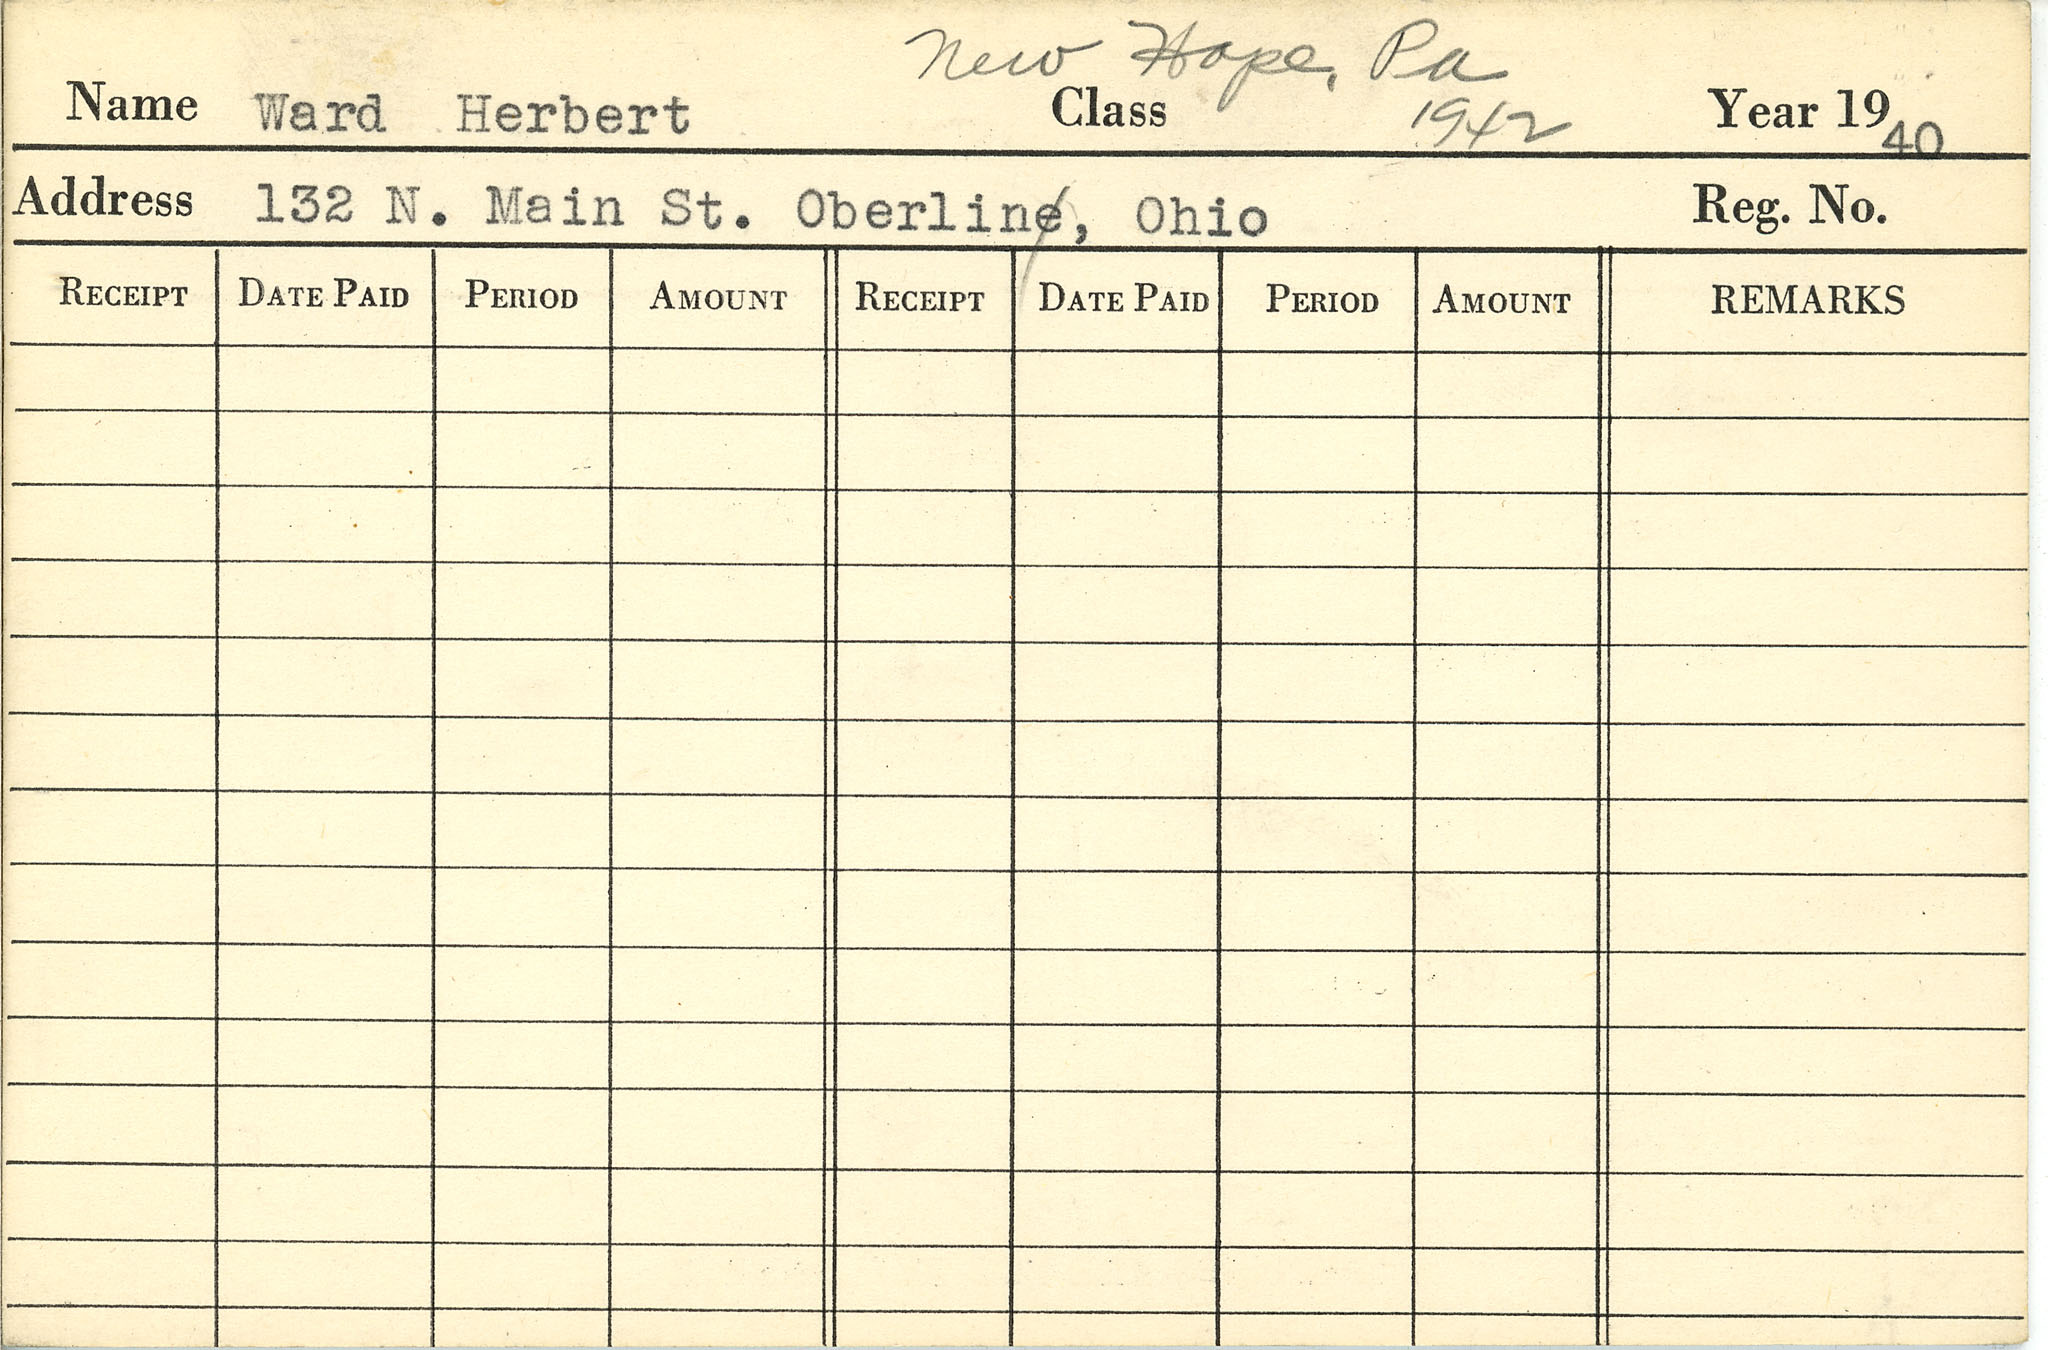 New Hope, Pa
Name Ward Herbert Class 1942 Year 1940
Address 132 N. Main St. Oberline, Ohio Reg. No.
RECEIPT DATE PAID PERIOD AMOUNT RECEIPT DATE PAID PERIOD AMOUNT REMARKS